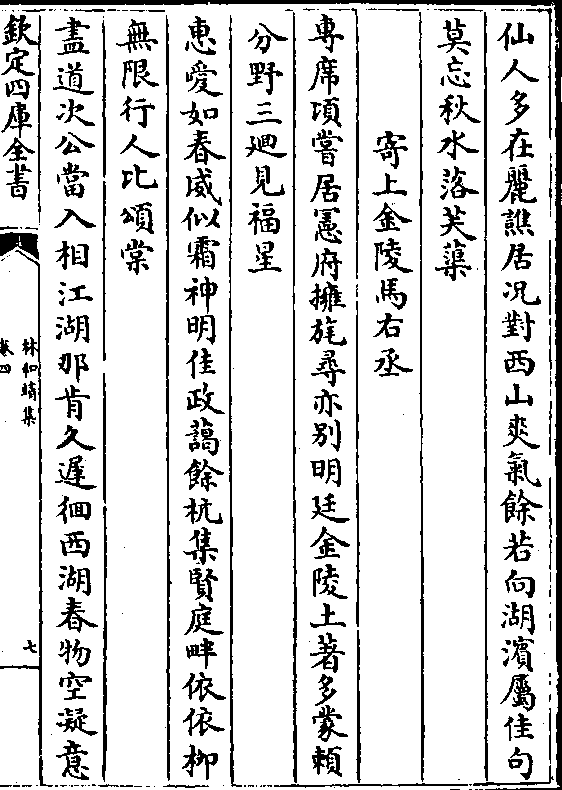 仙人多在麗譙居况對西山爽氣餘若向湖濱屬佳句
莫忘秋水落芙蕖
寄上金陵馬右丞
專席項嘗居憲府擁旄尋亦别明廷金陵土著多蒙賴
分野三廻見福星
惠愛如春威似霜神明佳政藹餘杭集賢庭畔依依柳
無限行人比頌棠
盡道次公當入相江湖那肯久遲徊西湖春物空凝意
欽定四庫全書
林和靖集
卷四
七